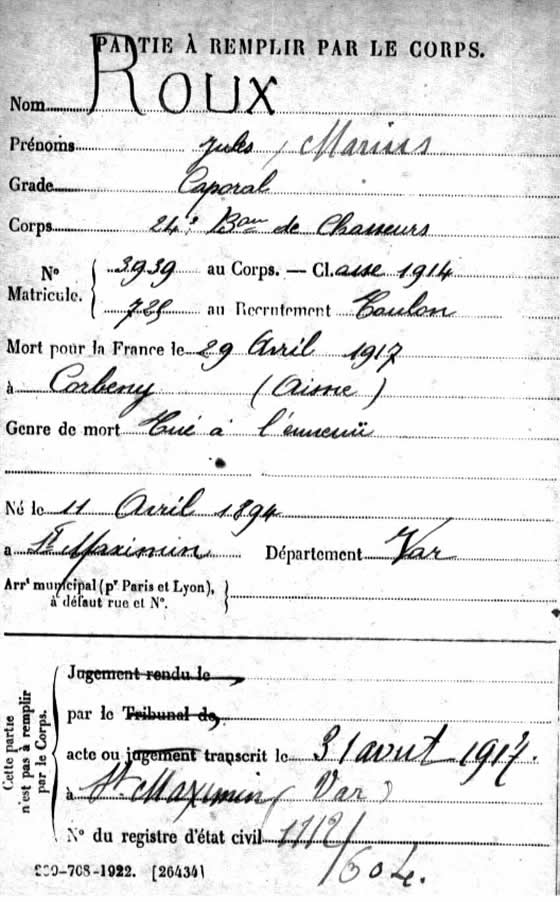 PARTIE À REMPLIR PAR LE CORPS.
Nom ROUX
Prénoms Jules, Marius
Grade Caporal
Corps 24e Bon de Chasseurs
No Matricule. 3939 au Corps. — Classe 1914
725 au Recrutement Toulon
Mort pour la France le 29 Avril 1917
à Corbeny (Aisne)
Genre de mort Tué à l'ennemi
Né le 11 Avril 1894
à St Maximin Département Var
Arrt municipal (pr Paris et Lyon),
à défaut rue et No.
Cette partie n'est pas à remplir par le Corps.
Jugement rendu le
par le Tribunal de
acte ou jugement transcrit le 31 août 1917.
à St Maximin (Var)
No du registre d'état civil 1712/
/604.
-708-1922. [26434]